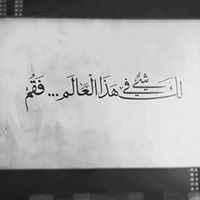 لَكَ شَيْءٌ فِي هَذَا الْعَالَمِ... فَقُمْ